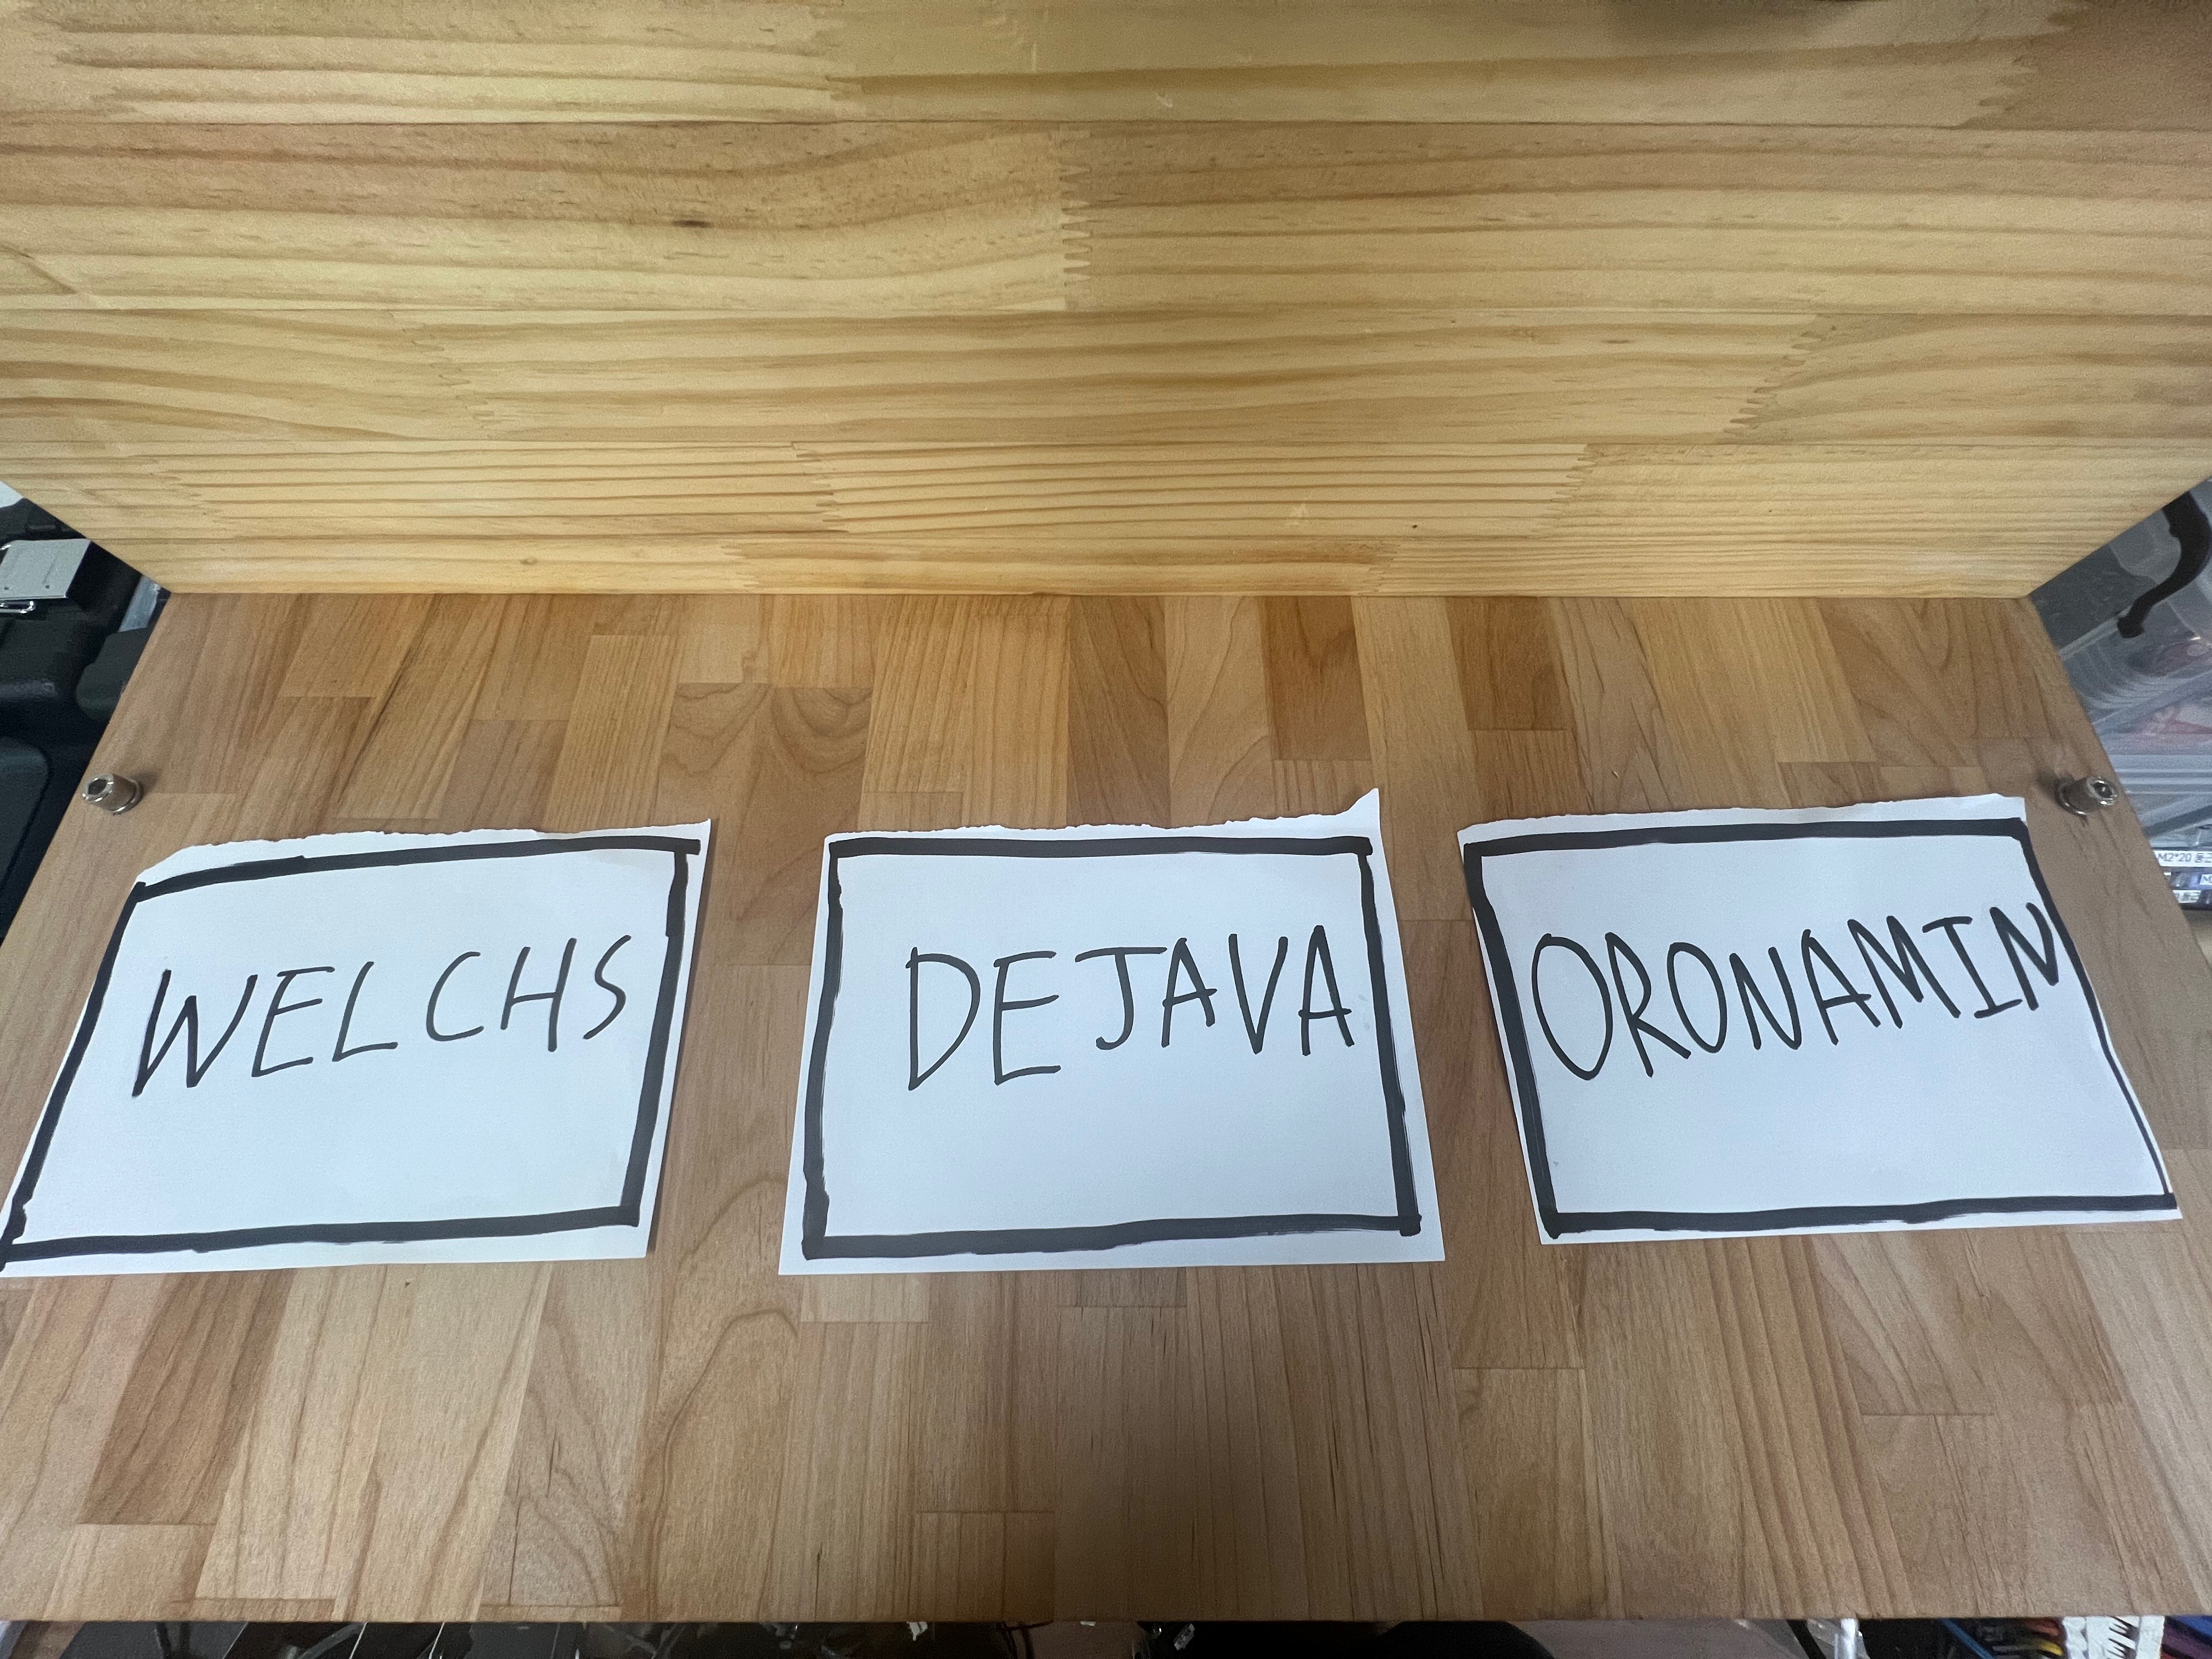 WELCHS
DEJAVA
ORONAMIN
M2*20